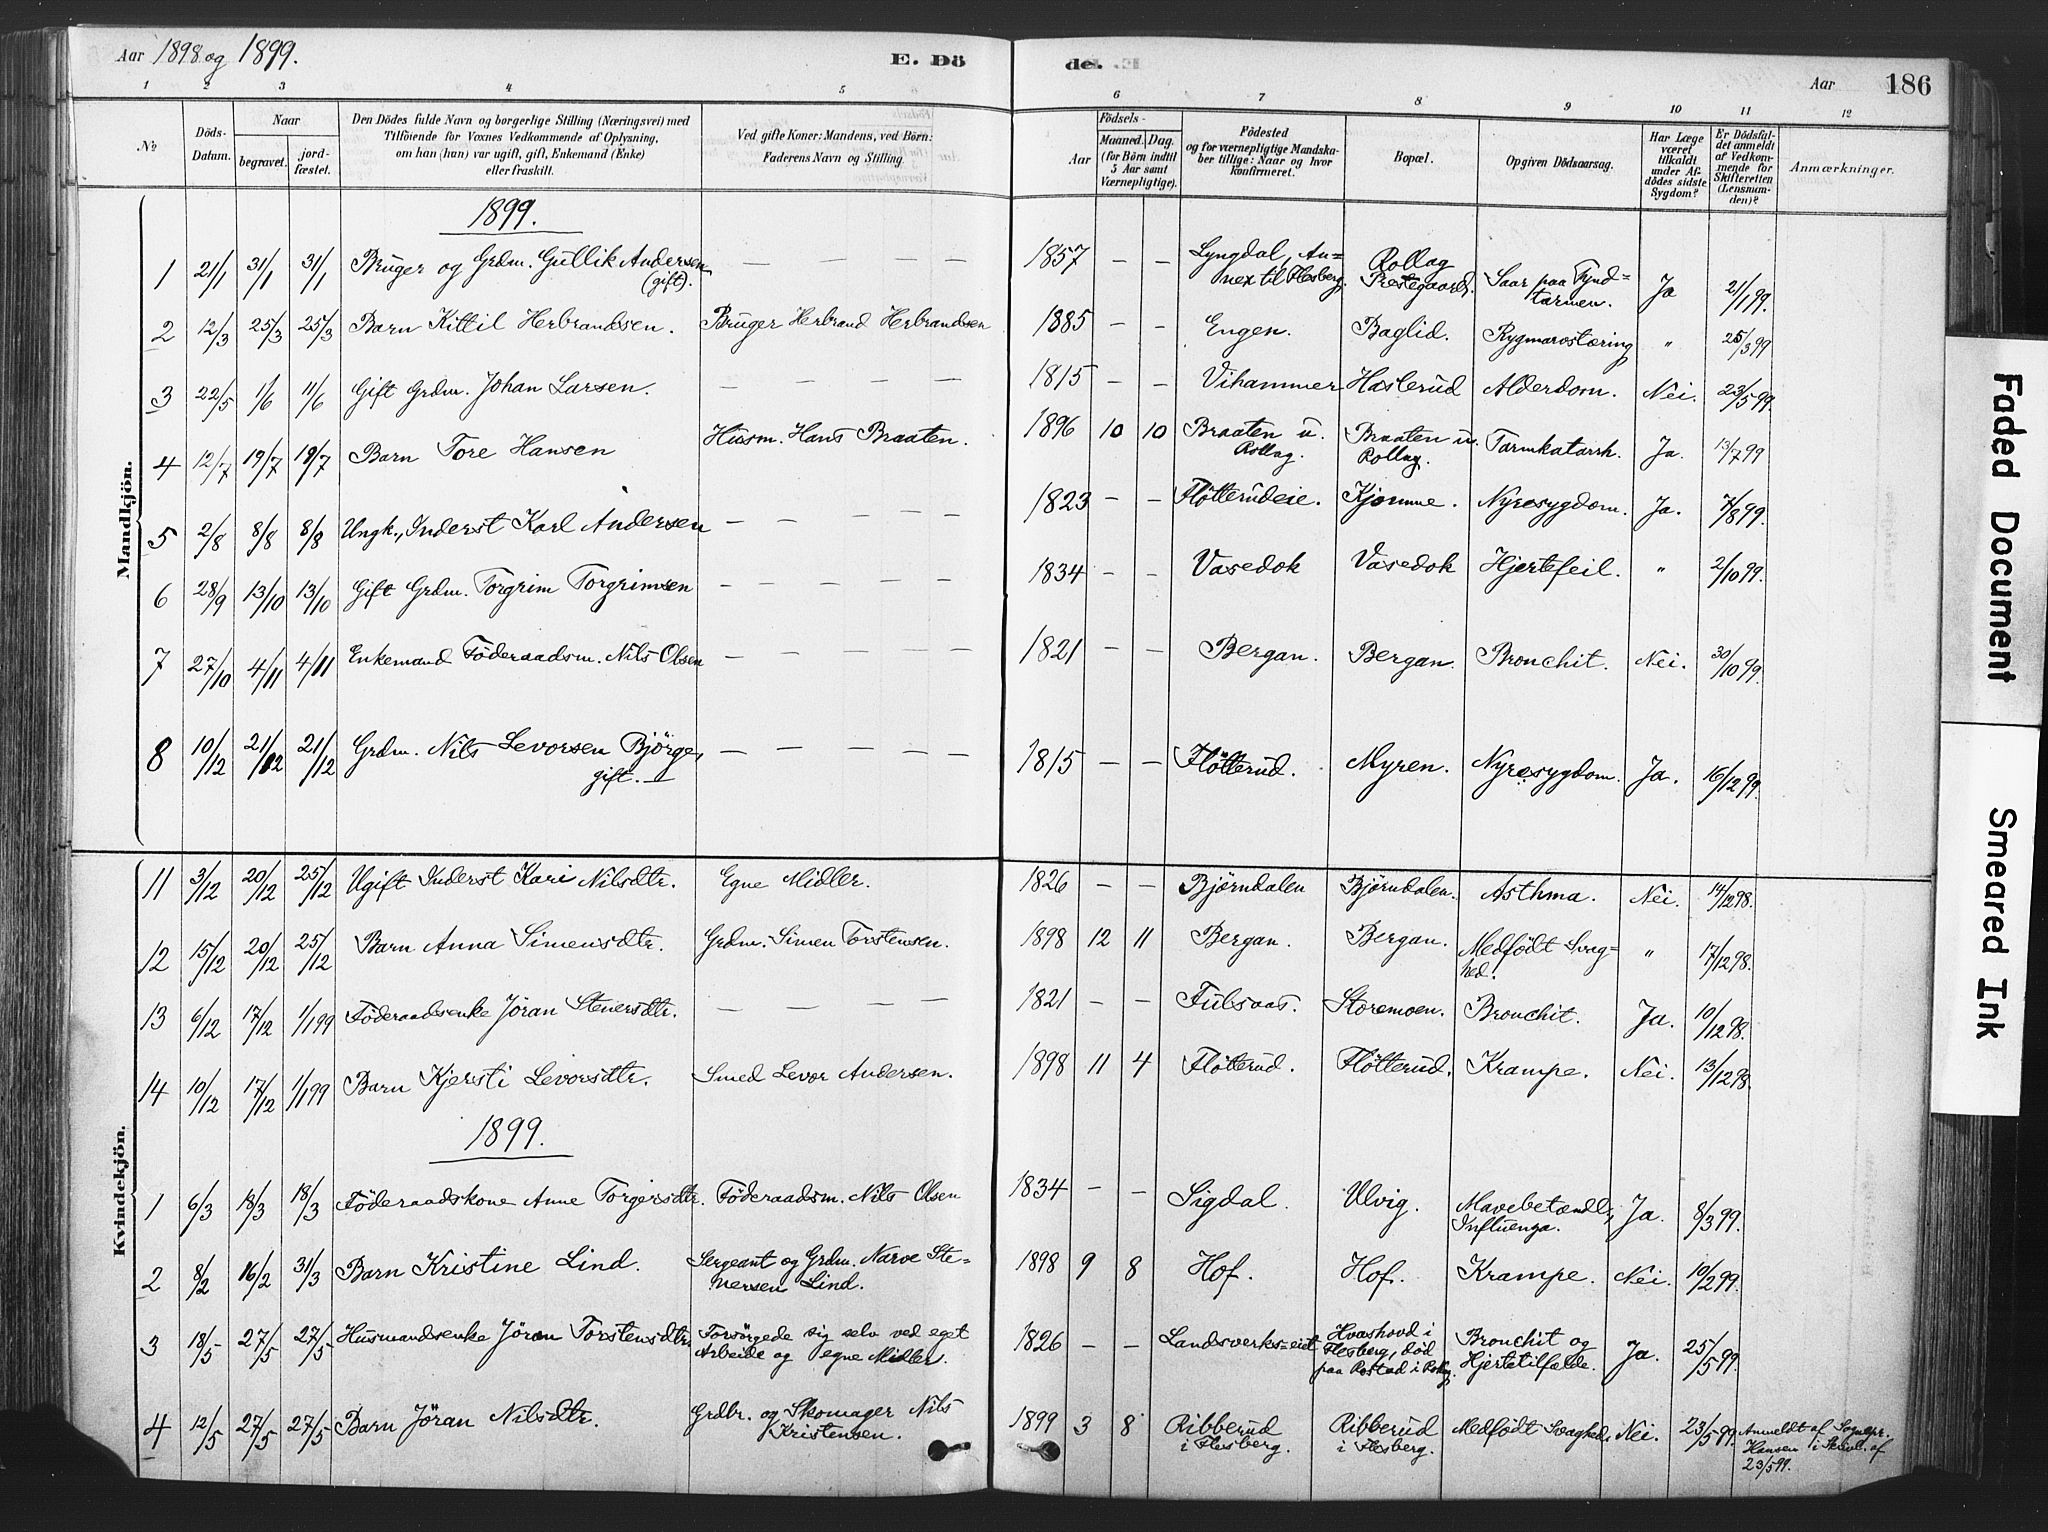 Aar 1898 og 1899.
E. Dö
de.
Aar 186
1 2 3 4 5 6 7 8 9 10 11 12
№
Döds-
Datum.
Naar
begravet.
jord-
fæstet.
Den Dödes fulde Navn og borgerlige Stilling (Næringsvei) med
Tilföiende for Voxnes Vedkommende af Oplysning,
om han (hun) var ugift, gift, Enkemand (Enke)
eller fraskilt.
Ved gifte Koner: Mandens, ved Börn:
Faderens Navn og Stilling.
Födsels-
Aar
Maaned. Dag.
(for Börn indtil
5 Aar samt
Værnepligtige).
Födested
og for værnepligtige Mandska-
ber tillige: Naar og hvor
konfirmeret.
Bopæl.
Opgiven Dödsaarsag.
Har Læge
været
tilkaldt
under Af-
dödes sidste
Sygdom?
Er Dödsfal-
det anmeldt
af Vedkom-
mende for
Skifteretten
(Lensman-
den)?
Anmærkninger.
Mandkjön.
1899.
1 21/1 31/1 31/1 Bruger og Grdm. Gullik Andersen (gift). — — — — 1857 — — Lyngdal, An=
nex til Flesberg. Rollag
Prestegaard. Saar paa Tynd=
tarmen. Ja 21/1 99.
2 12/3 25/3 25/3 Barn Kittil Herbrandsen. Bruger Herbrand Herbrandsen 1885 — — Engen. Baglid. Rygmarvstæring " 25/3 99
3 22/5 1/6 11/6 Gift Grdm. Johan Larsen. — — — — 1815 — — Vihammer Haslerud Alderdom. Nei. 23/5 99.
4 12/7 19/7 19/7 Barn Tore Hansen Husm. Hans Braaten. 1896 10 10 Braaten u.
Rollag. Braaten u.
Rollag. Tarmkatarrh. Ja. 13/7 99
5 2/8 8/8 8/8 Ungk., Inderst Karl Andersen — — — — 1823 — — Fløtterudeie. Kjomme. Nyresygdom. Ja. 7/8 99.
6 28/9 13/10 13/10 Gift Grdm. Torgrim Torgrimsen — — — — 1834 — — Vasedok Vasedok Hjertefeil. " 2/10 99.
7 27/10 4/11 4/11 Enkemand Föderaadsm. Nils Olsen — — — — 1821 — — Bergan. Bergan. Bronchit. Nei. 30/10 99.
8 10/12 21/12 21/12 Grdm. Nils Levorsen Björge,
gift. — — — — — 1815 — — Fløtterud. Myren. Nyresygdom. Ja. 16/12 99.
Kvindekjön.
11 3/12 20/12 25/12 Ugift Inderst Kari Nilsdtr. Egne Midler. 1826 — — Bjørndalen Bjørndalen. Asthma. Nei. 14/12 98.
12 15/12 20/12 25/12 Barn Anna Simensdtr. Grdm. Simen Torstensen. 1898 12 11 Bergan. Bergan. Medfødt Svag=
hed. " 17/12 98.
13 6/12 17/12 1/1 99 Föderaadsenke Jöran Steнersdtr. — — — — 1821 — — Fulsaas. Storemoen. Bronchit. Ja. 10/12 98.
14 10/12 17/12 1/1 99 Barn Kjersti Levorsdtr. Smed Levor Andersen. 1898 11 4 Fløtterud. Fløtterud. Krampe. Nei. 13/12 98.
1899.
1 6/3 18/3 18/3 Föderaadskone Anne Torgersdtr. Föderaadsm. Nils Olsen 1834 — — Sigdal. Ulvig. Mavebetændl.,
Influenza. Ja. 8/3 99.
2 8/2 16/2 31/3 Barn Kristine Lind. Sergeant og Grdm. Narve Ste=
nersen Lind. 1898 9 8 Hof. Hof. Krampe. Nei. 10/2 99.
3 18/5 27/5 27/5 Husmandsenke Jöran Torstensdtr. Forsörgede sig selv ved eget
Arbeide og egne Midler. 1826 — — Landsverks=eiet Hvashovd i
Flesberg, död
paa Rostad i Rollag Bronchit og
Hjertetilfælde. Ja. 25/5 99.
4 12/5 27/5 27/5 Barn Jöran Nilsdtr. Grdbr. og Skomager Nils
Kristensen. 1899 3 8 Ribberud
i Flesberg. Ribberud
i Flesberg. Medfødt Svaghed. Nei. 23/5 99. Anmeldt af Sognepr.
Hansen i Skriv. af
23/5 99.
Faded Document
Smeared Ink